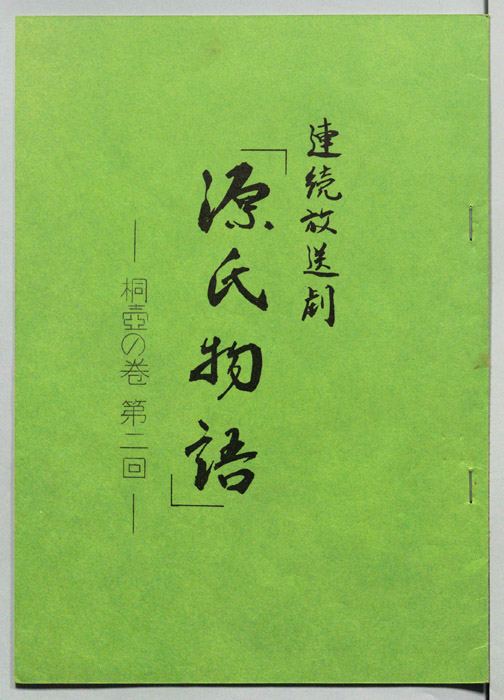 連続放送劇
「源氏物語」
― 桐壺の巻 第二回 ―